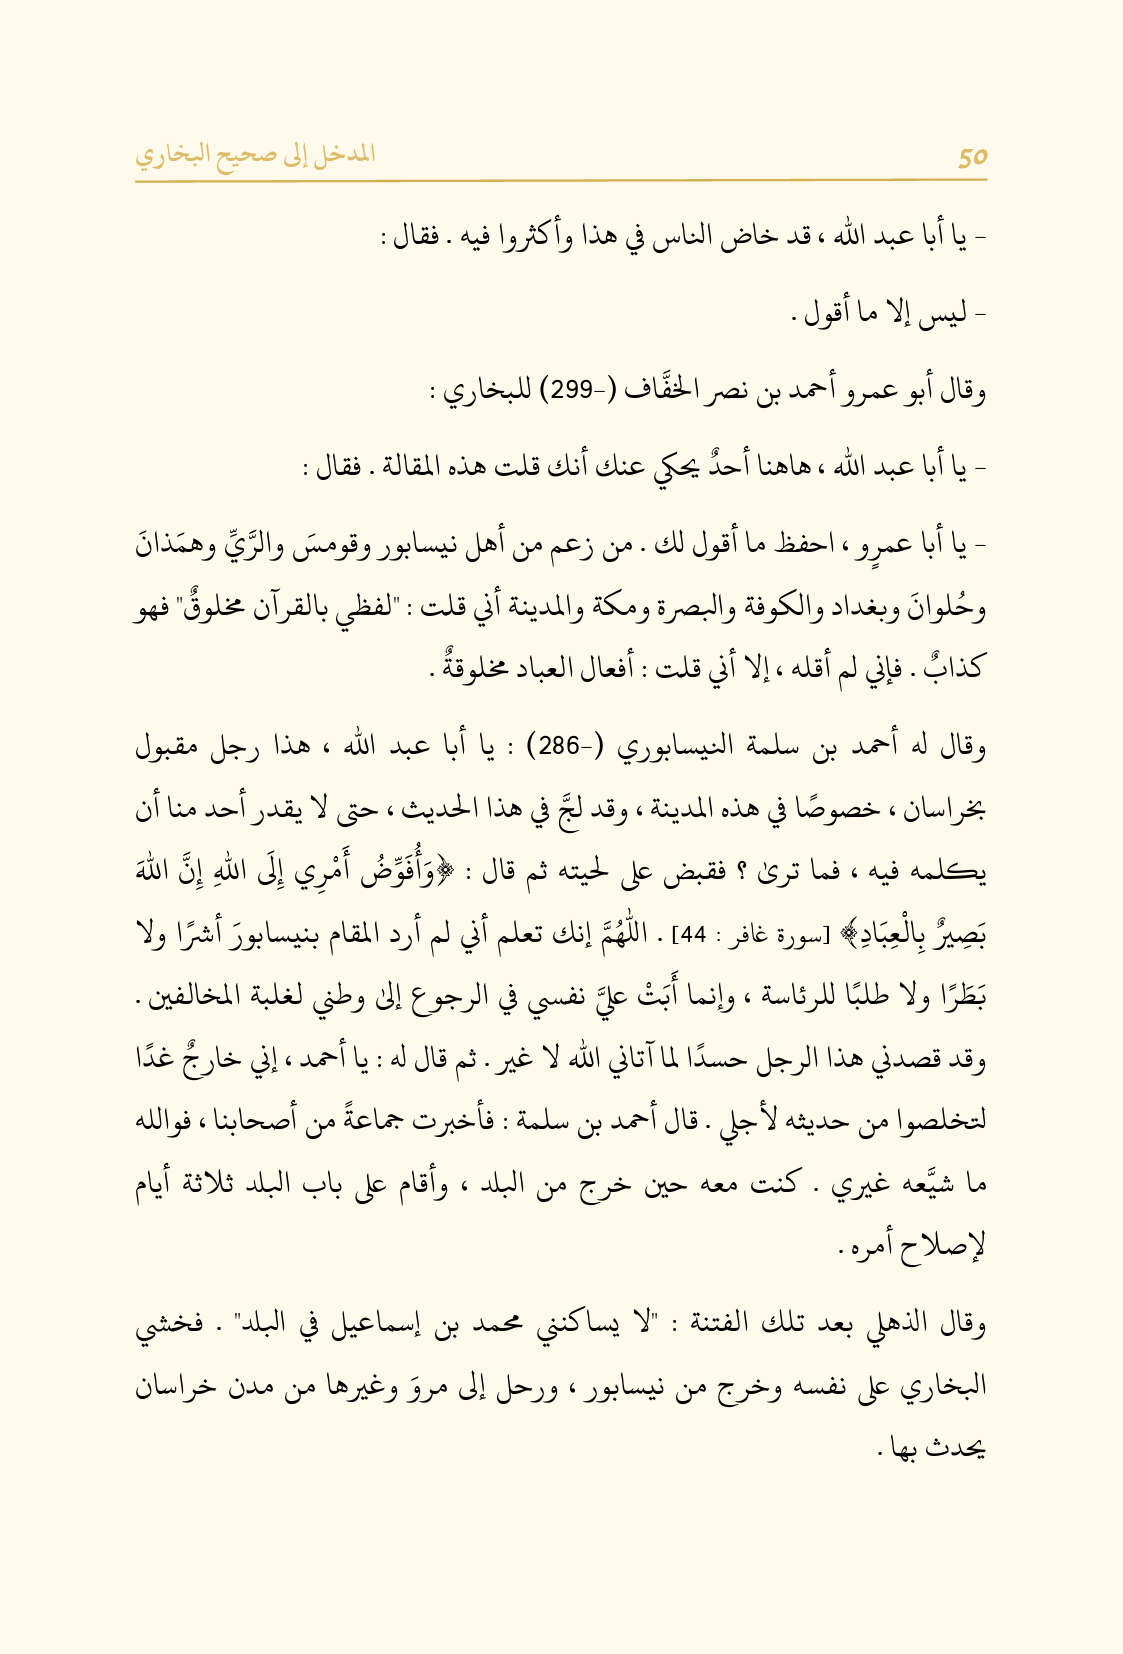 50
المدخل إلى صحيح البخاري
- يا أبا عبد الله ، قد خاض الناس في هذا وأكثروا فيه . فقال :
- ليس إلا ما أقول .
وقال أبو عمرو أحمد بن نصر الخفَّاف (-299) للبخاري :
- يا أبا عبد الله ، هاهنا أحدٌ يحكي عنك أنك قلت هذه المقالة . فقال :
- يا أبا عمرٍو ، احفظ ما أقول لك . من زعم من أهل نيسابور وقومسَ والرَّيِّ وهمَذانَ
وحُلوانَ وبغداد والكوفة والبصرة ومكة والمدينة أني قلت : "لفظي بالقرآن مخلوقٌ" فهو
كذابٌ . فإني لم أقله ، إلا أني قلت : أفعال العباد مخلوقةٌ .
وقال له أحمد بن سلمة النيسابوري (-286) : يا أبا عبد الله ، هذا رجل مقبول
بخراسان ، خصوصًا في هذه المدينة ، وقد لجَّ في هذا الحديث ، حتى لا يقدر أحد منا أن
يكلمه فيه ، فما ترىٰ ؟ فقبض على لحيته ثم قال : ﴿وَأُفَوِّضُ أَمْرِي إِلَى اللهِ إِنَّ اللهَ
بَصِيرٌ بِالْعِبَادِ﴾ [سورة غافر : 44] . اللّٰهُمَّ إنك تعلم أني لم أرد المقام بنيسابورَ أشرًا ولا
بَطَرًا ولا طلبًا للرئاسة ، وإنما أَبَتْ عليَّ نفسي في الرجوع إلىٰ وطني لغلبة المخالفين .
وقد قصدني هذا الرجل حسدًا لما آتاني الله لا غير . ثم قال له : يا أحمد ، إني خارجٌ غدًا
لتخلصوا من حديثه لأجلي . قال أحمد بن سلمة : فأخبرت جماعةً من أصحابنا ، فوالله
ما شيَّعه غيري . كنت معه حين خرج من البلد ، وأقام على باب البلد ثلاثة أيام
لإصلاح أمره .
وقال الذهلي بعد تلك الفتنة : "لا يساكنني محمد بن إسماعيل في البلد" . فخشي
البخاري على نفسه وخرج من نيسابور ، ورحل إلى مروَ وغيرها من مدن خراسان
يحدث بها .